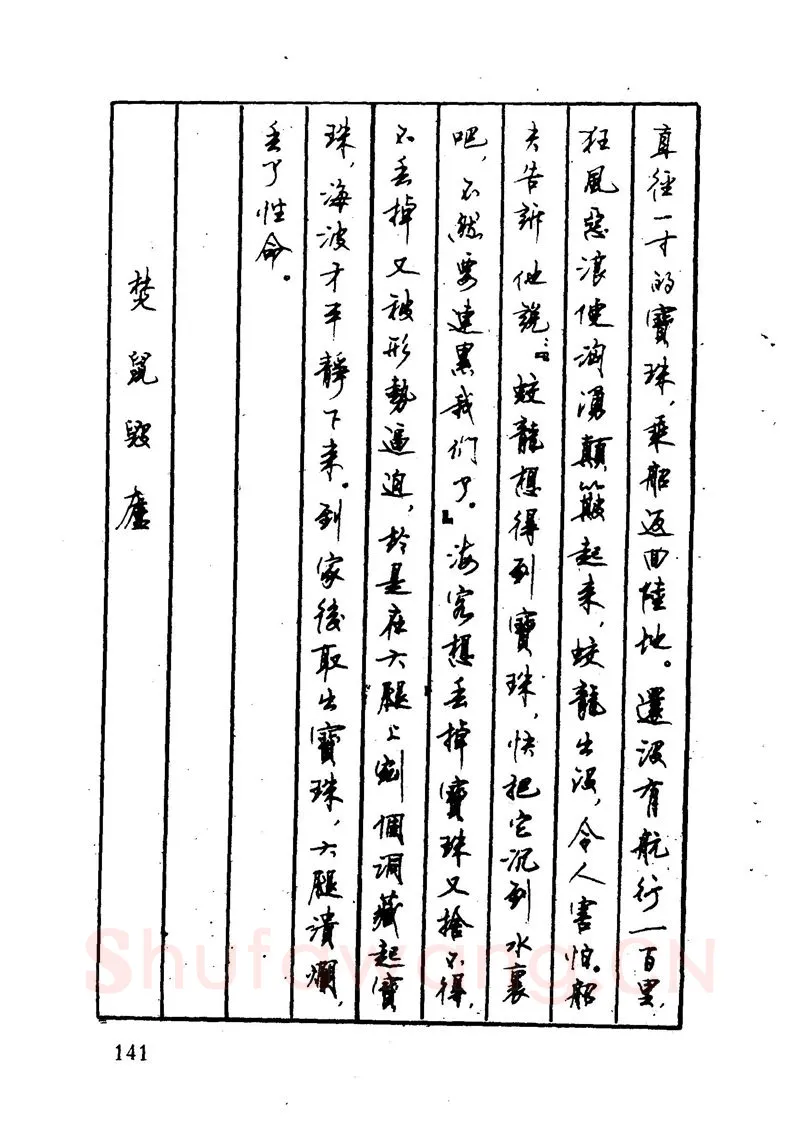 直徑一寸的寶珠，乘船返回陸地。還没有航行一百里，
狂風惡浪便洶湧顛簸起来，蛟龍出没，令人害怕。船
夫告訴他説：﹃蛟龍想得到寶珠，快把它沉到水裏
吧，不然要連累我們了。﹄海客想丢掉寶珠又捨不得，
不丢掉又被形勢逼迫，於是在大腿上剜個洞藏起寶
珠，海波才平靜下来。到家後取出寶珠，大腿潰爛，
丢了性命。
焚鼠毁廬
141
Shufawang.CN